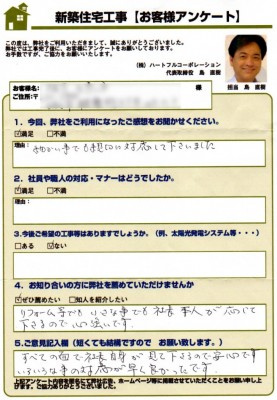 新築住宅工事【お客様アンケート】
この度は、弊社をご利用いただきまして、誠にありがとうございました。
弊社では工事完了後に、お客様にアンケートをお願いしております。
お手数ですが、ご協力をお願いいたします。
(株)ハートフルコーポレーション
代表取締役 島 直樹
担当 島 直樹
お客様名: 様
ご住所:〒
1.今回、弊社をご利用になったご感想をお聞かせください。
☑満足 □不満
理由: 細かい事でも親切に対応して下さいました
2.社員や職人の対応・マナーはどうでしたか。
☑満足 □不満
理由:
3.今後ご希望の工事等はありますでしょうか。(例、太陽光発電システム等・・・)
□ある ☑ない
4.お知り合いの方に弊社を薦めていただけませんか
☑ぜひ薦めたい □知人を紹介したい
リフォーム等でも 小さな事でも社長本人が応じて
下さるので心強いです。
5.ご意見記入欄(短くても結構ですので お願い致します。)
すべての面で社長自身が見て下さるので安心です
いろいろな事の対応が早く良かったです。
上記アンケート内容を匿名にて弊社広告、ホームページ等に掲載させていただくことをお願い申し上げます。
ご協力ありがとうございました。